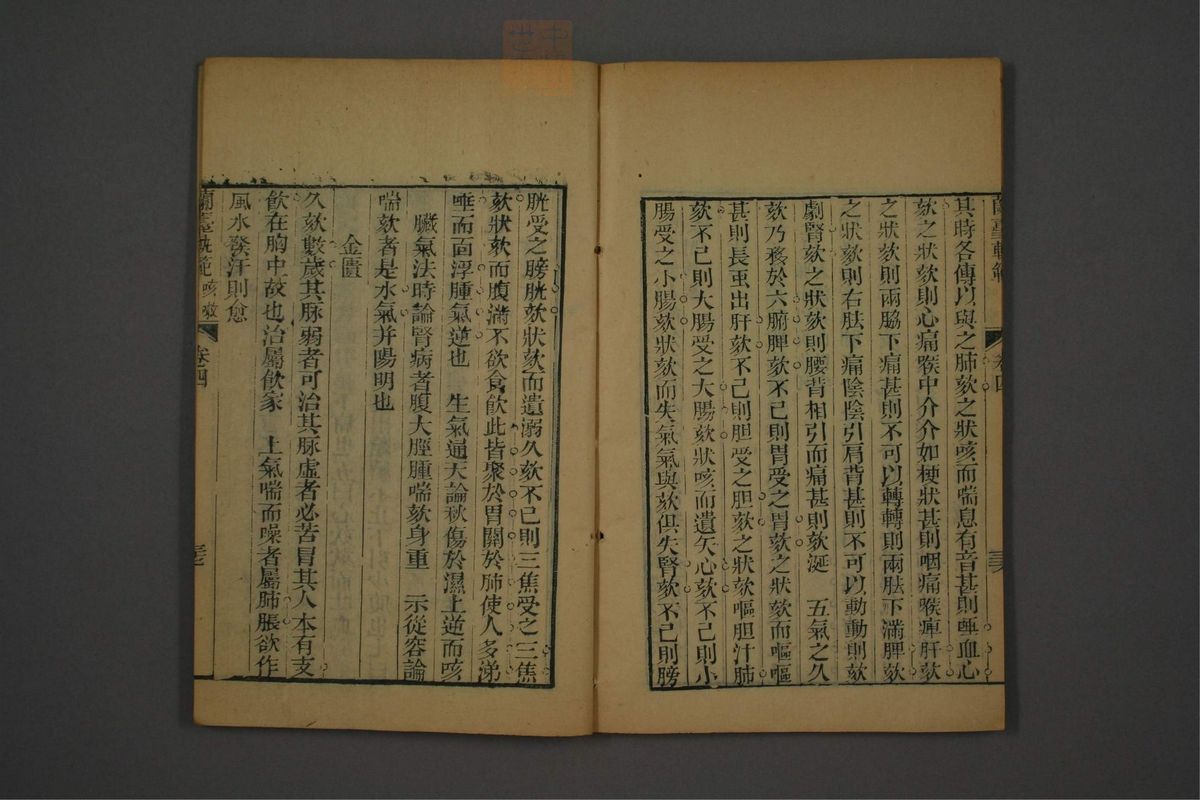 其時各傳以與之肺欬之狀咳而喘息有音甚則唾血心
欬之狀欬則心痛喉中介介如梗狀甚則咽痛喉痺肝欬
之狀欬則兩脇下痛甚則不可以轉轉則兩胠下滿脾欬
之狀欬則右胠下痛陰陰引肩背甚則不可以動動則欬
劇腎欬之狀欬則腰背相引而痛甚則欬涎　五氣之久
欬乃移於六腑脾欬不已則胃受之胃欬之狀欬而嘔嘔
甚則長䖝出肝欬不已則胆受之胆欬之狀欬嘔胆汁肺
欬不已則大腸受之大腸欬狀咳而遺矢心欬不已則小
腸受之小腸欬狀欬而失氣氣與欬俱失腎欬不已則膀
蘭臺軌範　卷四
胱受之膀胱欬狀欬而遺溺久欬不已則三焦受之三焦
欬狀欬而腹滿不欲食飲此皆聚於胃關於肺使人多涕
唾而面浮腫氣逆也　生氣通天論秋傷於濕上逆而咳
臟氣法時論腎病者腹大脛腫喘欬身重　示從容論
喘欬者是水氣并陽明也
金匱
久欬數歲其脉弱者可治其脉虛者必苦冒其人本有支
飲在胸中故也治屬飲家　上氣喘而噪者屬肺脹欲作
風水發汗則愈
蘭臺軌範　咳嗽　卷四